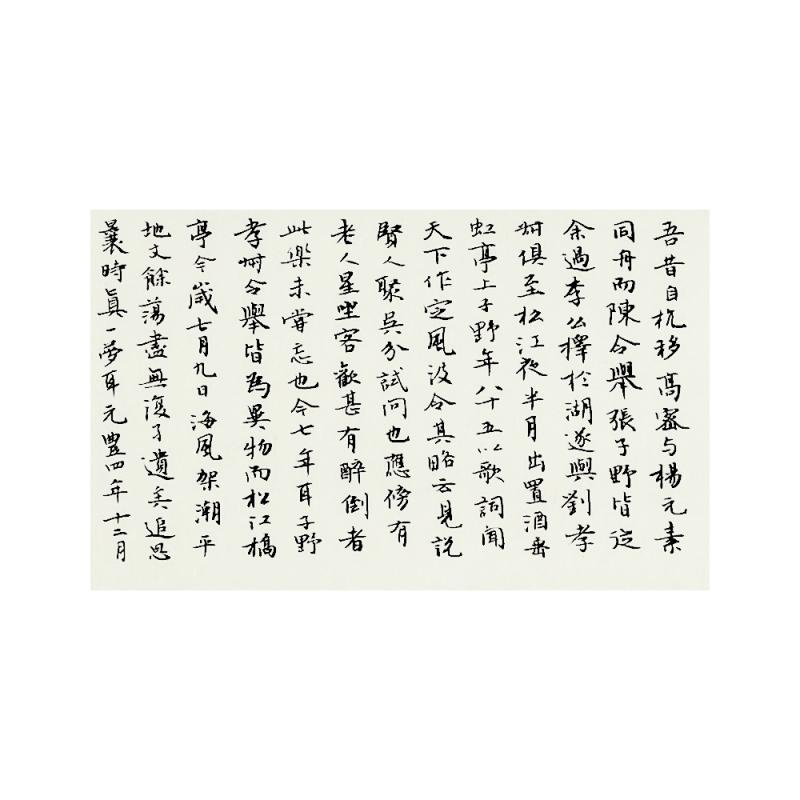 吾昔自杭移高密与楊元素
同舟而陳令舉張子野皆從
余過李公擇於湖遂與劉孝
叔俱至松江夜半月出置酒垂
虹亭上子野年八十五以歌詞聞
天下作定風波令其略云見說
賢人聚吳分試问也應傍有
老人星坐客歡甚有醉倒者
此樂未嘗忘也今七年耳子野
孝叔令舉皆為異物而松江橋
亭今歲七月九日海風架潮平
地丈餘蕩盡無復孑遺矣追思
曩時眞一夢耳元豐四年十二月